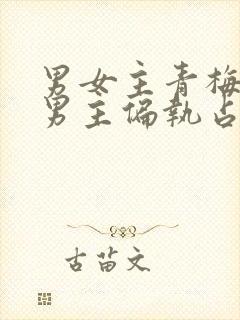 男女主青梅
男主偏执占
古苗文